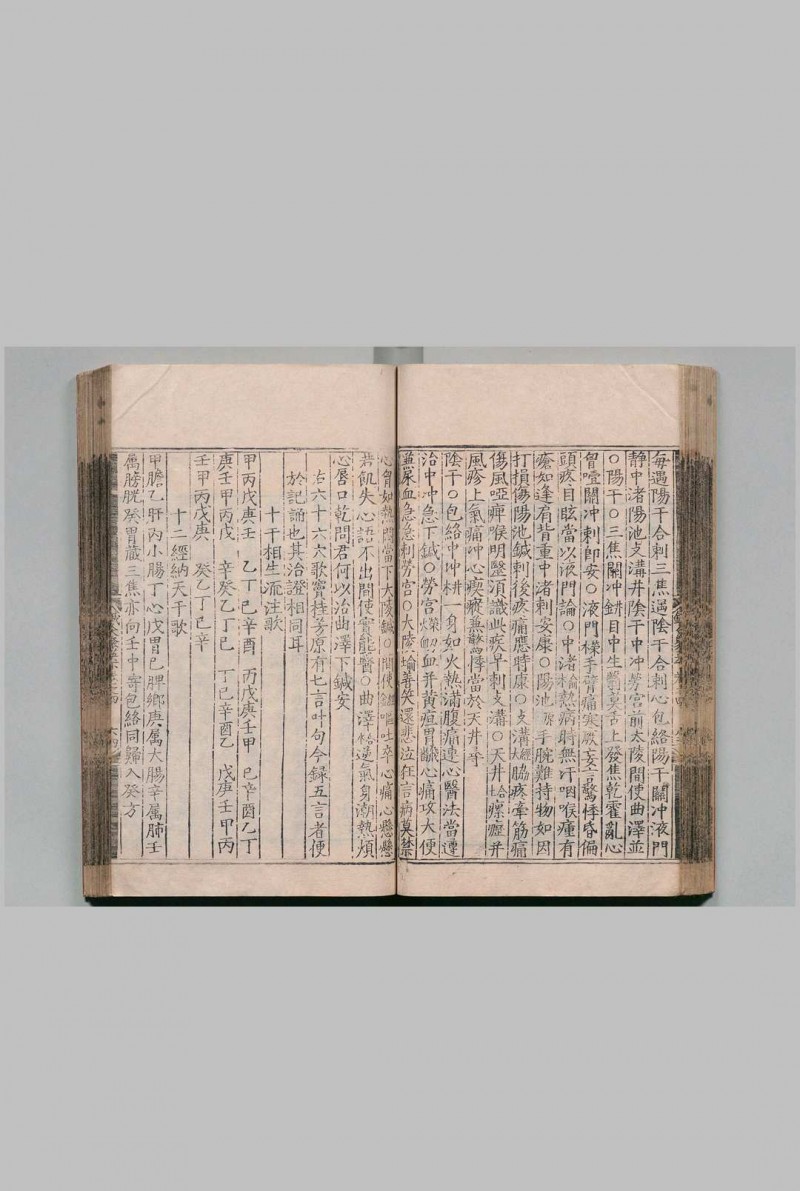 每遇陽干合刺三焦遇陰干合刺心包絡陽干關冲液門
靜中渚陽池支溝井陰干中冲勞宮前大陵間使曲澤並
○陽干○三焦關冲鍼目中生翳裏舌上發焦乾霍亂心
胷噎關冲刺卽安○液門様手臂痛寒厥妄言驚悸昏偏
頭疼目眩當以液門論○中渚福熱病時無汗咽喉瘇有
瘡如逢肩背重中渚刺安康○陽池手腕難持物如因
打損傷陽池鍼刺後疼痛應時康○支溝脇疼牽筋痛
傷風啞痺喉明毉須識此疾早刺支溝○天井瘰癧并
風疹上氣痛冲心瘈瘲兼驚悸當於天井尋
陰干○包絡中冲耕一身如火熱滿腹痛連心醫法當遵
治中冲急下鍼○勞宮血并黃疸胃翻心痛攻大便
并尿血急急刺勞宮○大陵善笑還悲泣狂言病莫禁
心胷如熱悶當下大陵鍼○間使嘔吐卒心痛心懸懸
若飢失心語不出間使實能醫○曲澤逆氣身潮熱煩
心唇口乾問君何以治曲澤下鍼安
右六十六穴歌竇桂芳原有七言叶句今録五言者便
於記誦也其治證相同耳
十干相生流注歌
甲丙戊庚壬 乙丁己辛酉 丙戊庚壬甲 己辛酉乙丁
庚壬甲丙戊 辛癸乙丁己 丁己辛酉乙 戊庚壬甲丙
壬甲丙戊庚 癸乙丁己辛
十二經納天干歌
甲膽乙肝丙小腸丁心戊胃己脾鄉庚属大腸辛属肺壬
属膀胱癸腎藏三焦亦向壬中寄包絡同歸入癸方